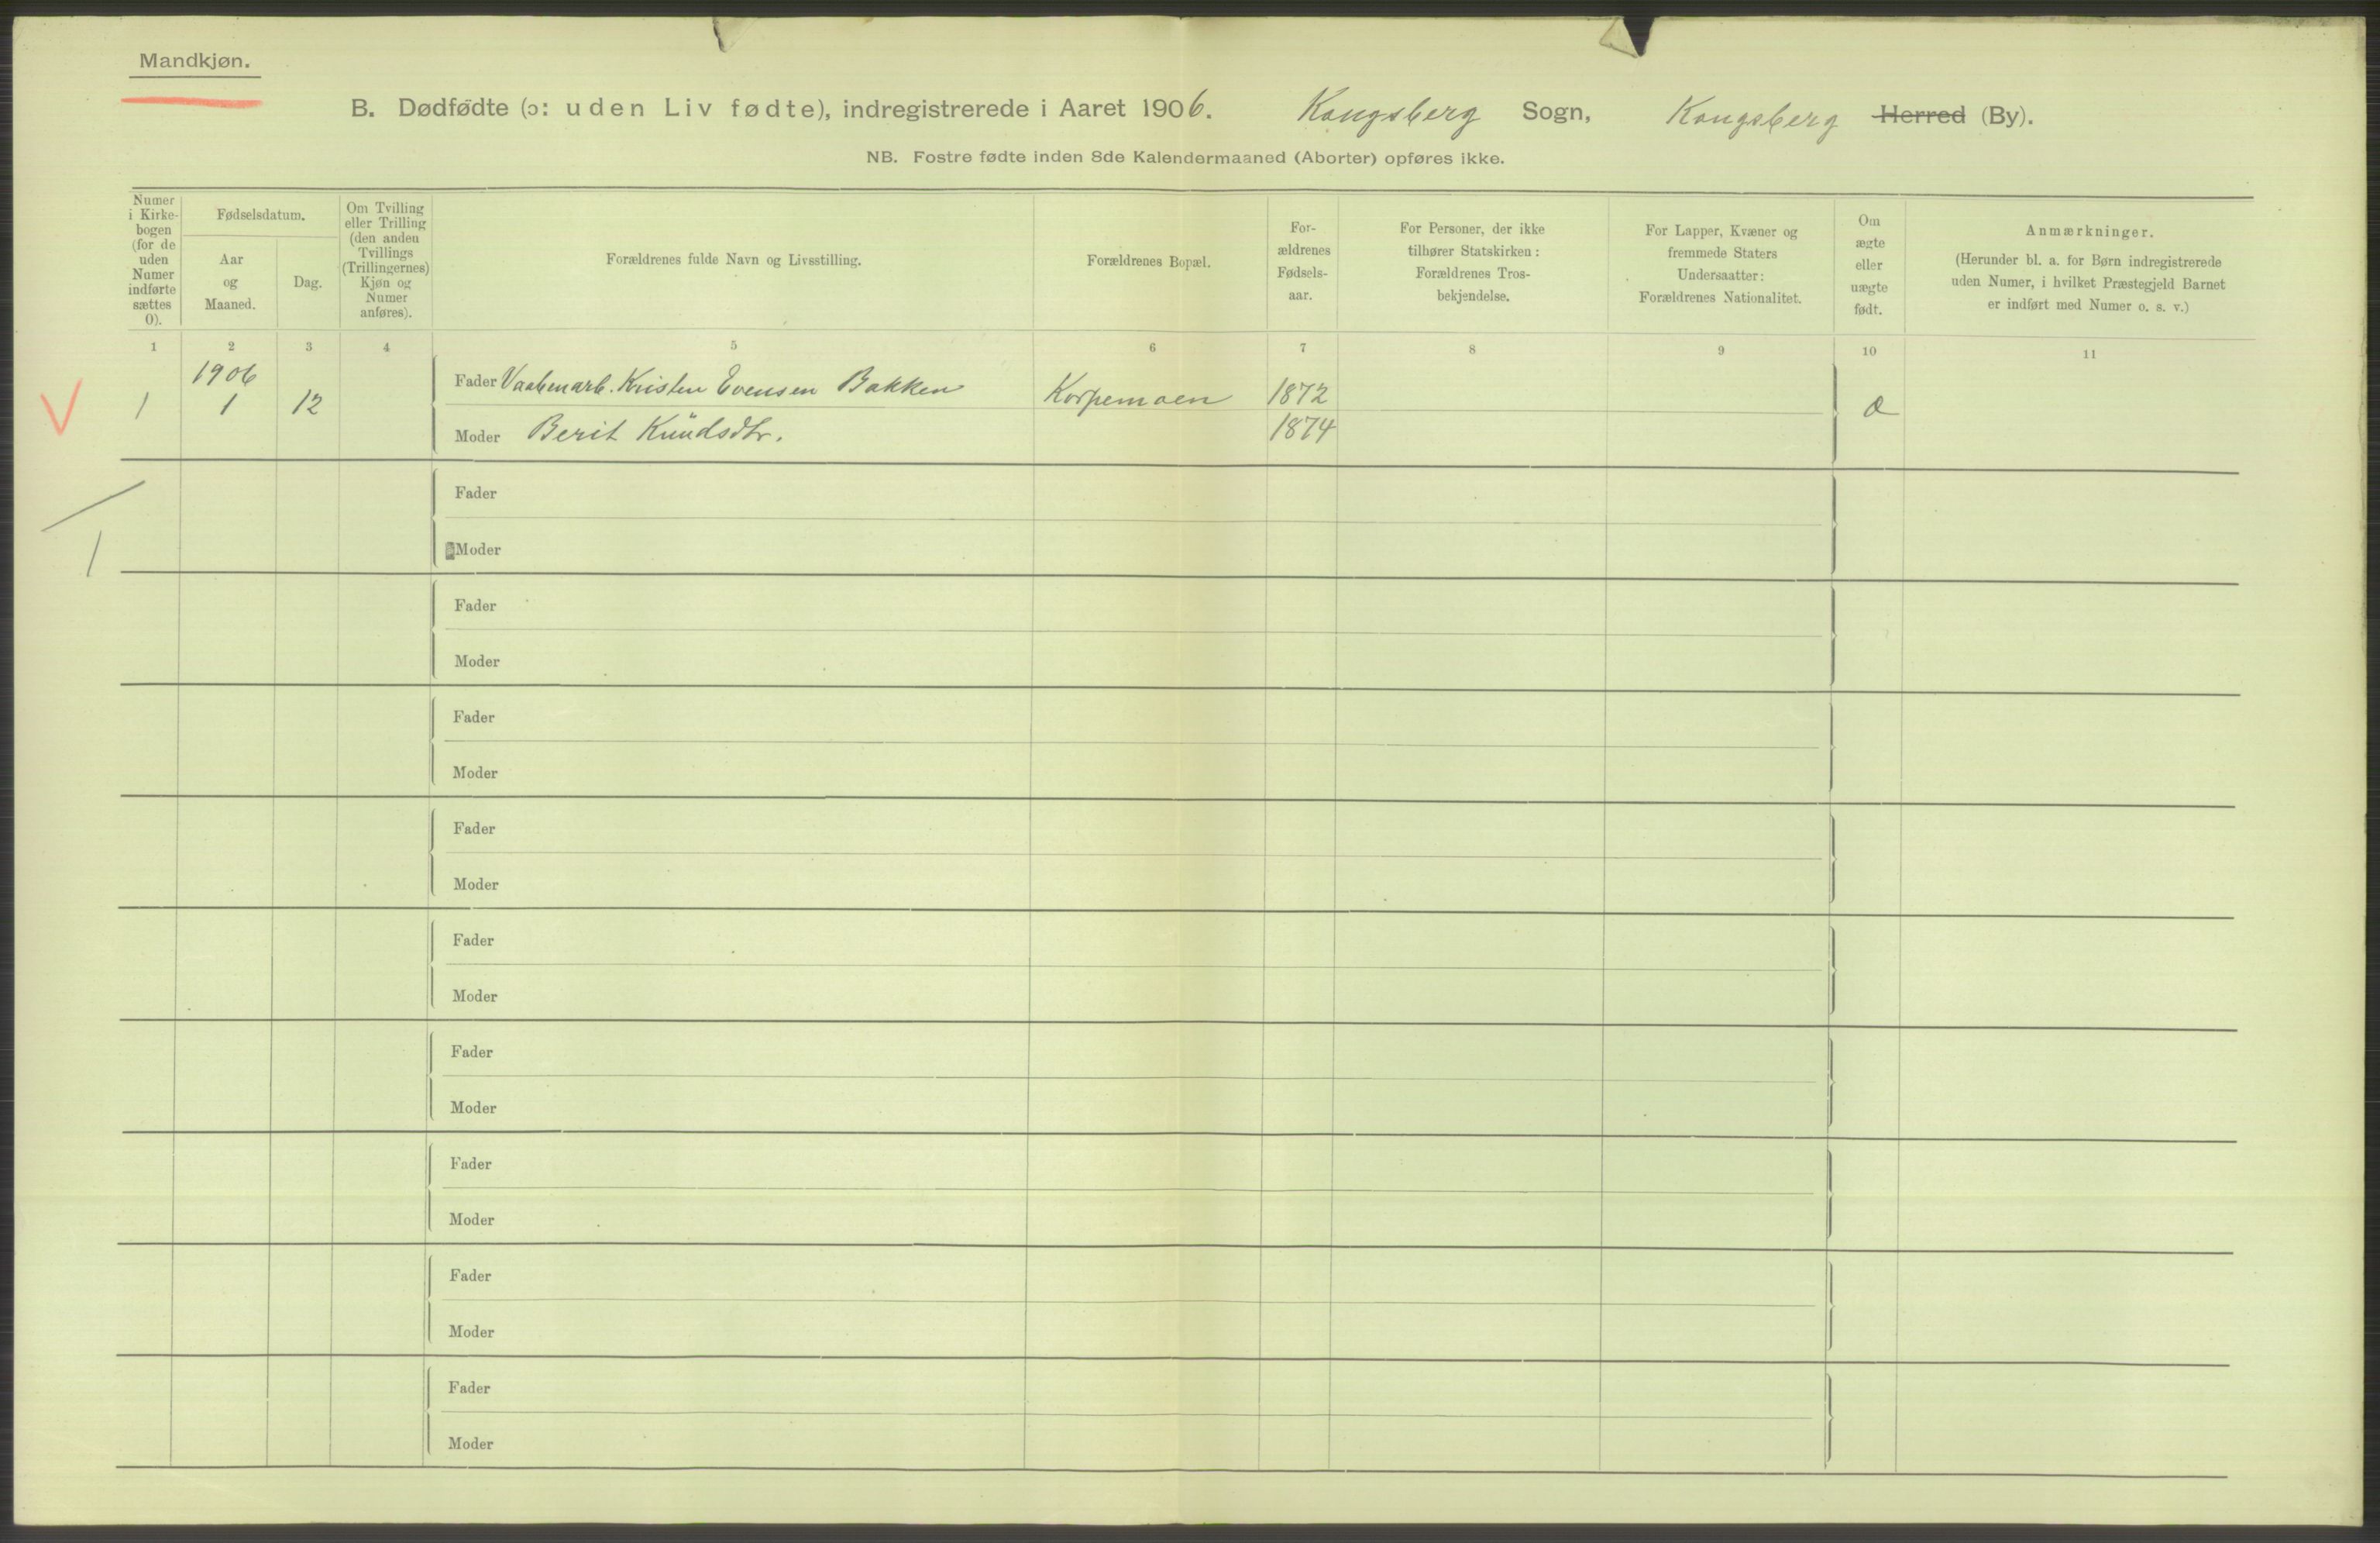 Mandkjøn.
B. Dødfødte (ɔ: uden Liv fødte), indregistrerede i Aaret 1906. Kongsberg Sogn, Kongsberg Herred (By).
NB. Fostre fødte inden 8de Kalendermaaned (Aborter) opføres ikke.
Numer
i Kirke-
bogen
(for de
uden
Numer
indførte
sættes
0).
Fødselsdatum.
Aar
og
Maaned.
Dag.
Om Tvilling
eller Trilling
(den anden
Tvillings
(Trillingernes)
Kjøn og
Numer
anføres).
Forældrenes fulde Navn og Livsstilling.
Forældrenes Bopæl.
For-
ældrenes
Fødsels-
aar.
For Personer, der ikke
tilhører Statskirken:
Forældrenes Tros-
bekjendelse.
For Lapper, Kvæner og
fremmede Staters
Undersaatter:
Forældrenes Nationalitet.
Om
ægte
eller
uægte
født.
Anmærkninger.
(Herunder bl. a. for Børn indregistrerede
uden Numer, i hvilket Præstegjeld Barnet
er indført med Numer o. s. v.)
1 2 3 4 5 6 7 8 9 10 11
1906
V 1 1 12 Fader Vaabenarb. Kristen Evensen Bakken Korpemoen 1872 æ
Moder Berit Knudsdtr. 1874
Fader
1 Moder
Fader
Moder
Fader
Moder
Fader
Moder
Fader
Moder
Fader
Moder
Fader
Moder
Fader
Moder
Fader
Moder